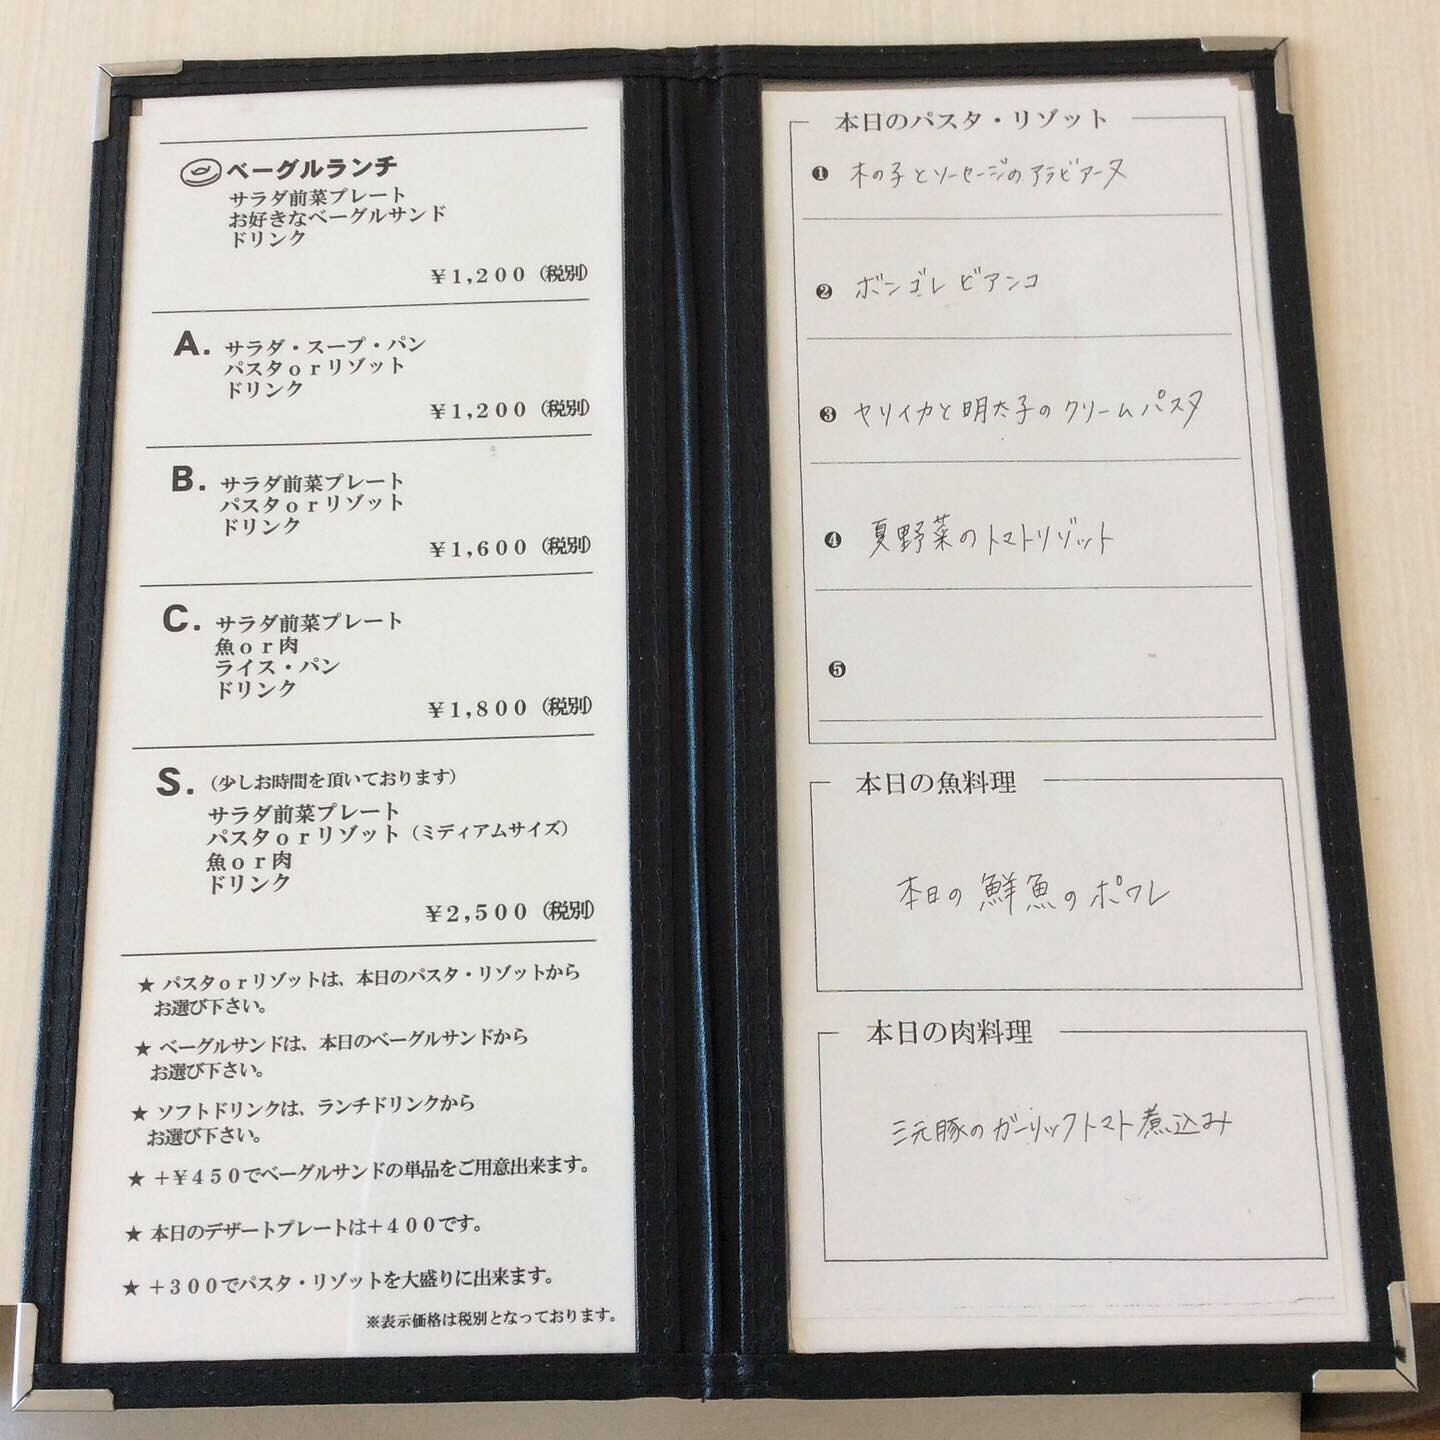 ベーグルランチ
サラダ前菜プレート
お好きなベーグルサンド
ドリンク
¥1,200（税別）
A. サラダ・スープ・パン
パスタorリゾット
ドリンク
¥1,200（税別）
B. サラダ前菜プレート
パスタorリゾット
ドリンク
¥1,600（税別）
C. サラダ前菜プレート
魚or肉
ライス・パン
ドリンク
¥1,800（税別）
S.（少しお時間を頂いております）
サラダ前菜プレート
パスタorリゾット（ミディアムサイズ）
魚or肉
ドリンク
¥2,500（税別）
★ パスタorリゾットは、本日のパスタ・リゾットから
お選び下さい。
★ ベーグルサンドは、本日のベーグルサンドから
お選び下さい。
★ ソフトドリンクは、ランチドリンクから
お選び下さい。
★ +¥450でベーグルサンドの単品をご用意出来ます。
★ 本日のデザートプレートは+400です。
★ +300でパスタ・リゾットを大盛りに出来ます。
※表示価格は税別となっております。
本日のパスタ・リゾット
❶ 木の子とソーセージのアラビアータ
❷ ボンゴレビアンコ
❸ ヤリイカと明太子のクリームパスタ
❹ 夏野菜のトマトリゾット
❺
本日の魚料理
本日の鮮魚のポワレ
本日の肉料理
三元豚のガーリックトマト煮込み